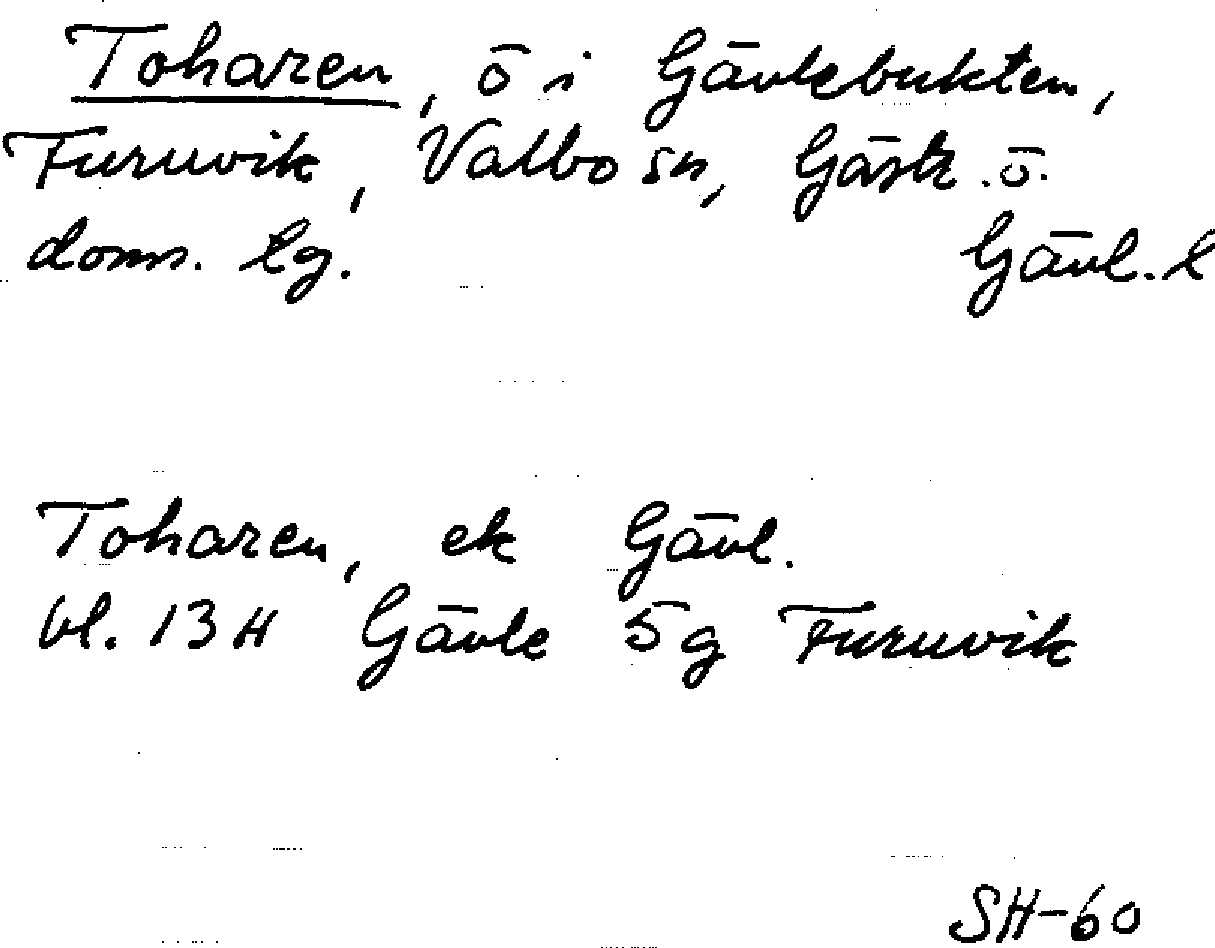 Toharen, ö i Gävlebukten,
Furuvik, Valbo sn, Gästr. ö.
doms. lg. Gävl. l
Toharen, ek Gävl.
bl. 13 H Gävle 5 g Furuvik
SH-60